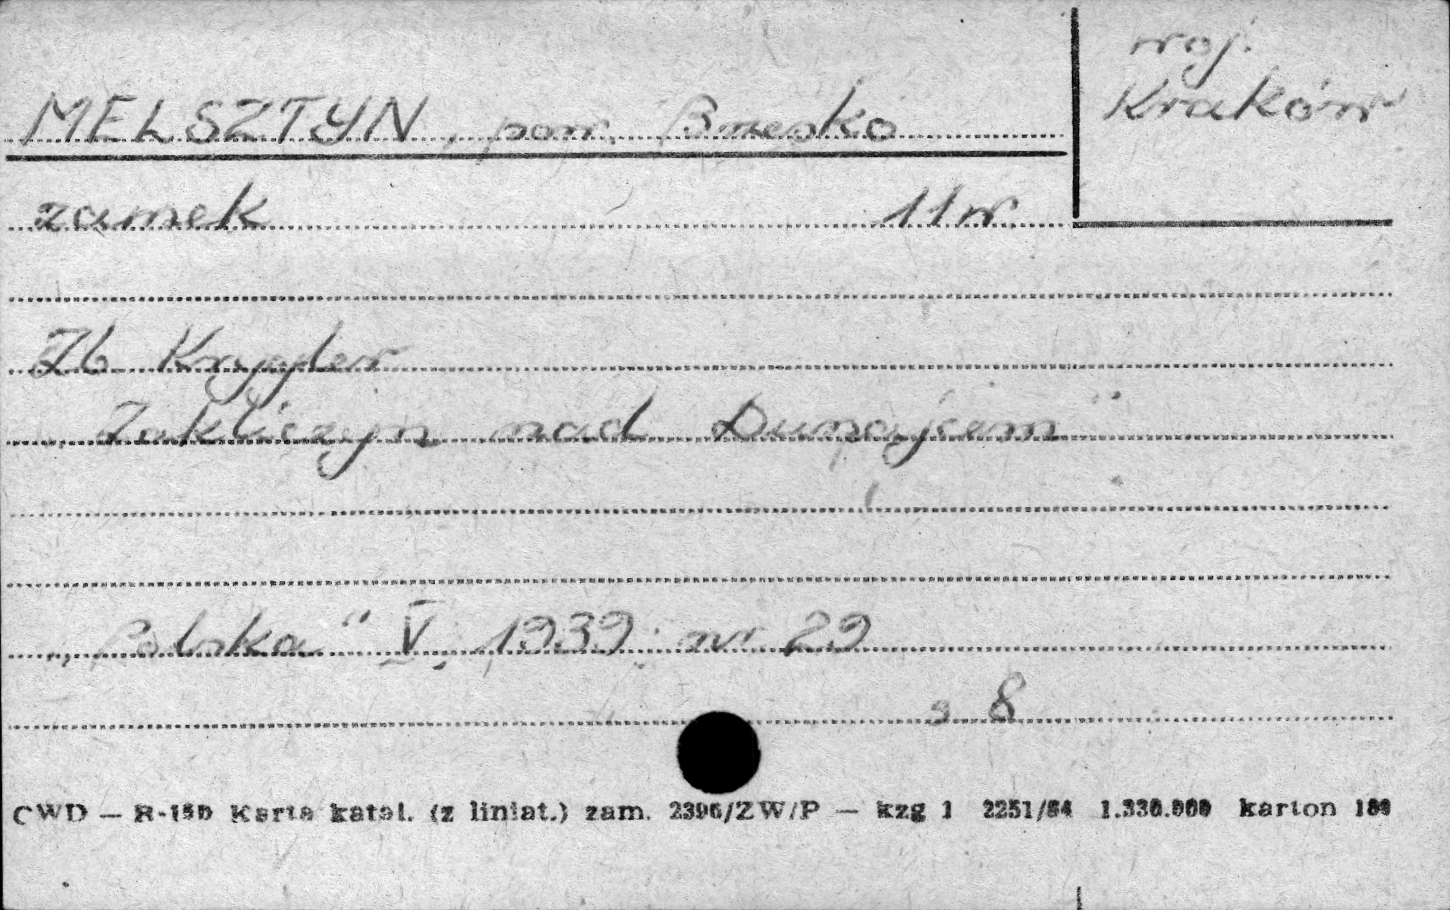 woj.
Kraków
MELSZTYN, pow. Brzesko
zamek 11 w.
Zb. Krygler
„Zakliczyn nad Dunajcem"
„Polska" V, 1939 nr 29
s 8
CWD — R-15b Karta katal. (z liniat.) zam. 2396/ZW/P — kzg 1 2251/64 1.330.000 karton 180